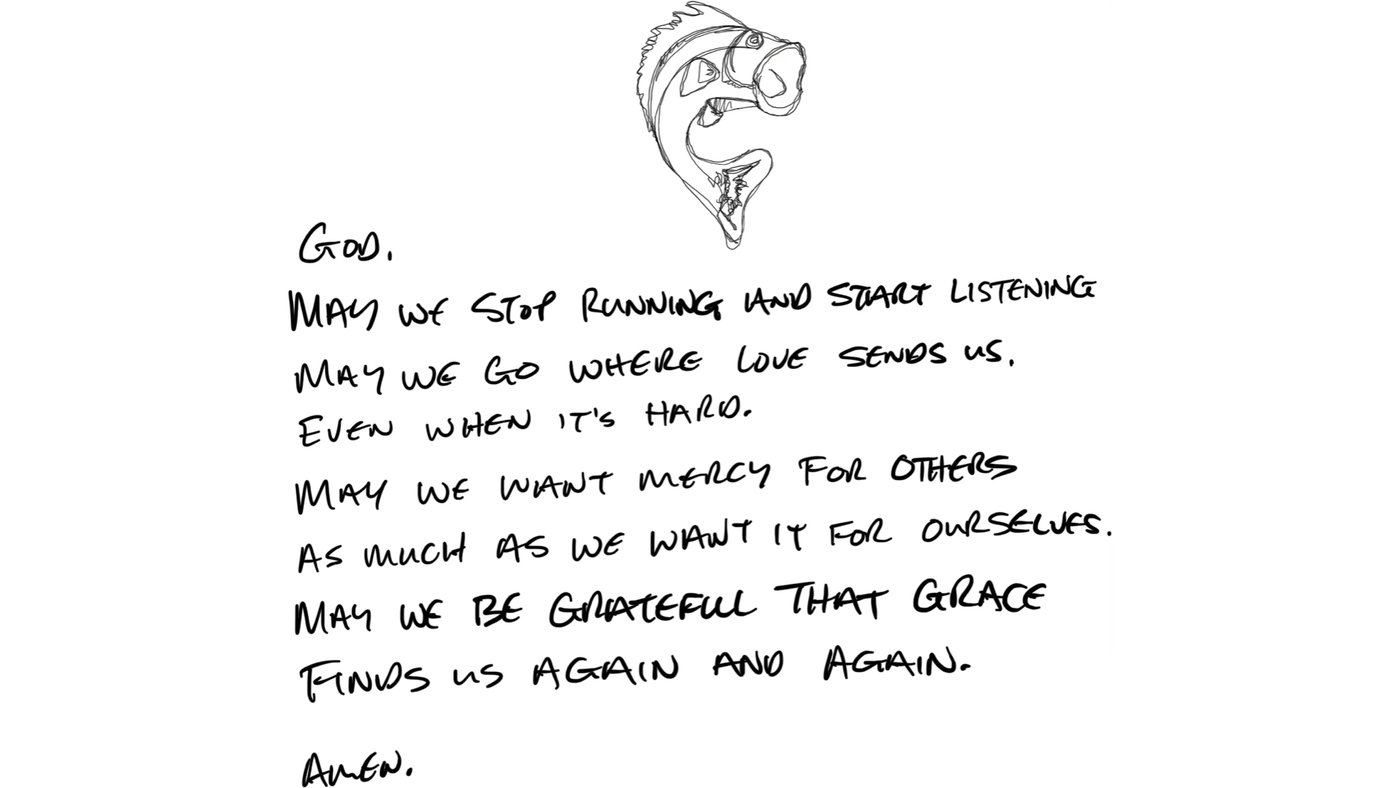 GOD.
MAY WE STOP RUNNING AND START LISTENING
MAY WE GO WHERE LOVE SENDS US.
EVEN WHEN IT'S HARD.
MAY WE WANT MERCY FOR OTHERS
AS MUCH AS WE WANT IT FOR OURSELVES.
MAY WE BE GRATEFUL THAT GRACE
FINDS US AGAIN AND AGAIN.
AMEN.